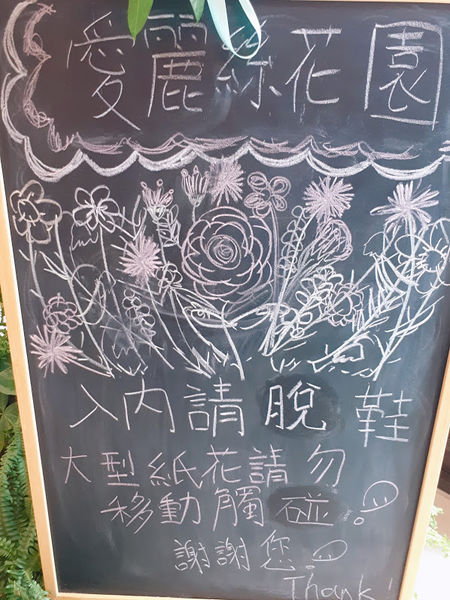 愛麗絲花園
入內請脫鞋
大型紙花請勿
移動觸碰!
謝謝您!
Thank!